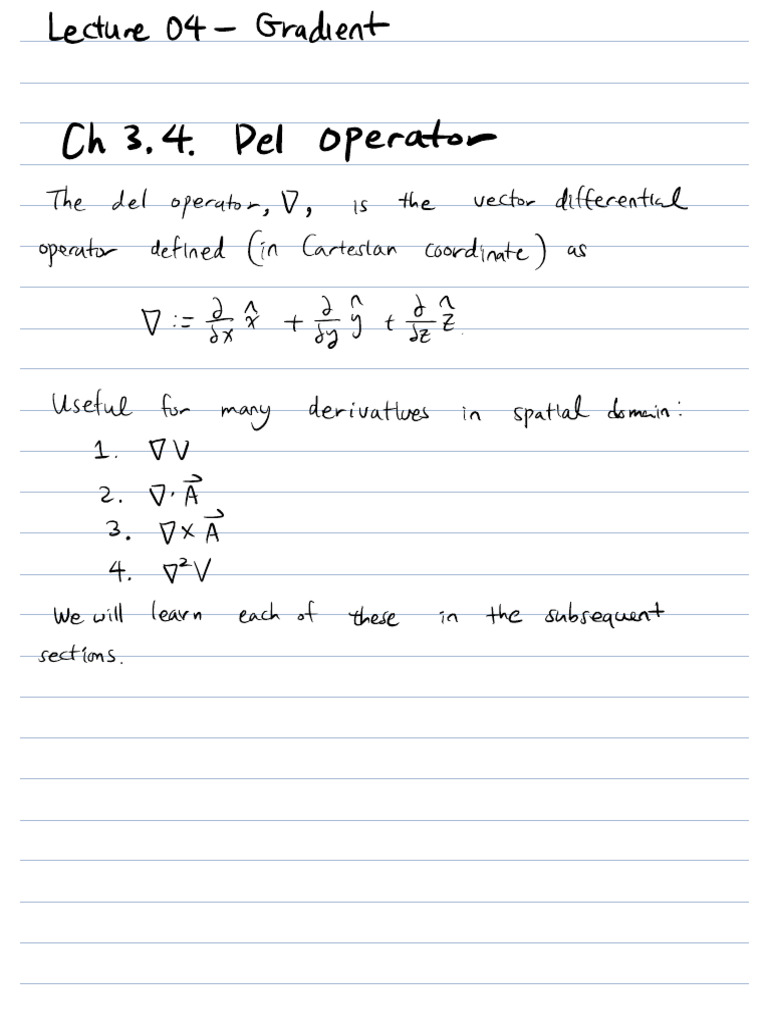 Lecture 04 - Gradient
Ch 3.4. Del operator
The del operator, ∇, is the vector differential
operator defined (in Cartesian coordinate) as
∇ := ∂/∂x x̂ + ∂/∂y ŷ + ∂/∂z ẑ
Useful for many derivatives in spatial domain:
1. ∇V
2. ∇·A⃗
3. ∇×A⃗
4. ∇²V
We will learn each of these in the subsequent
sections.